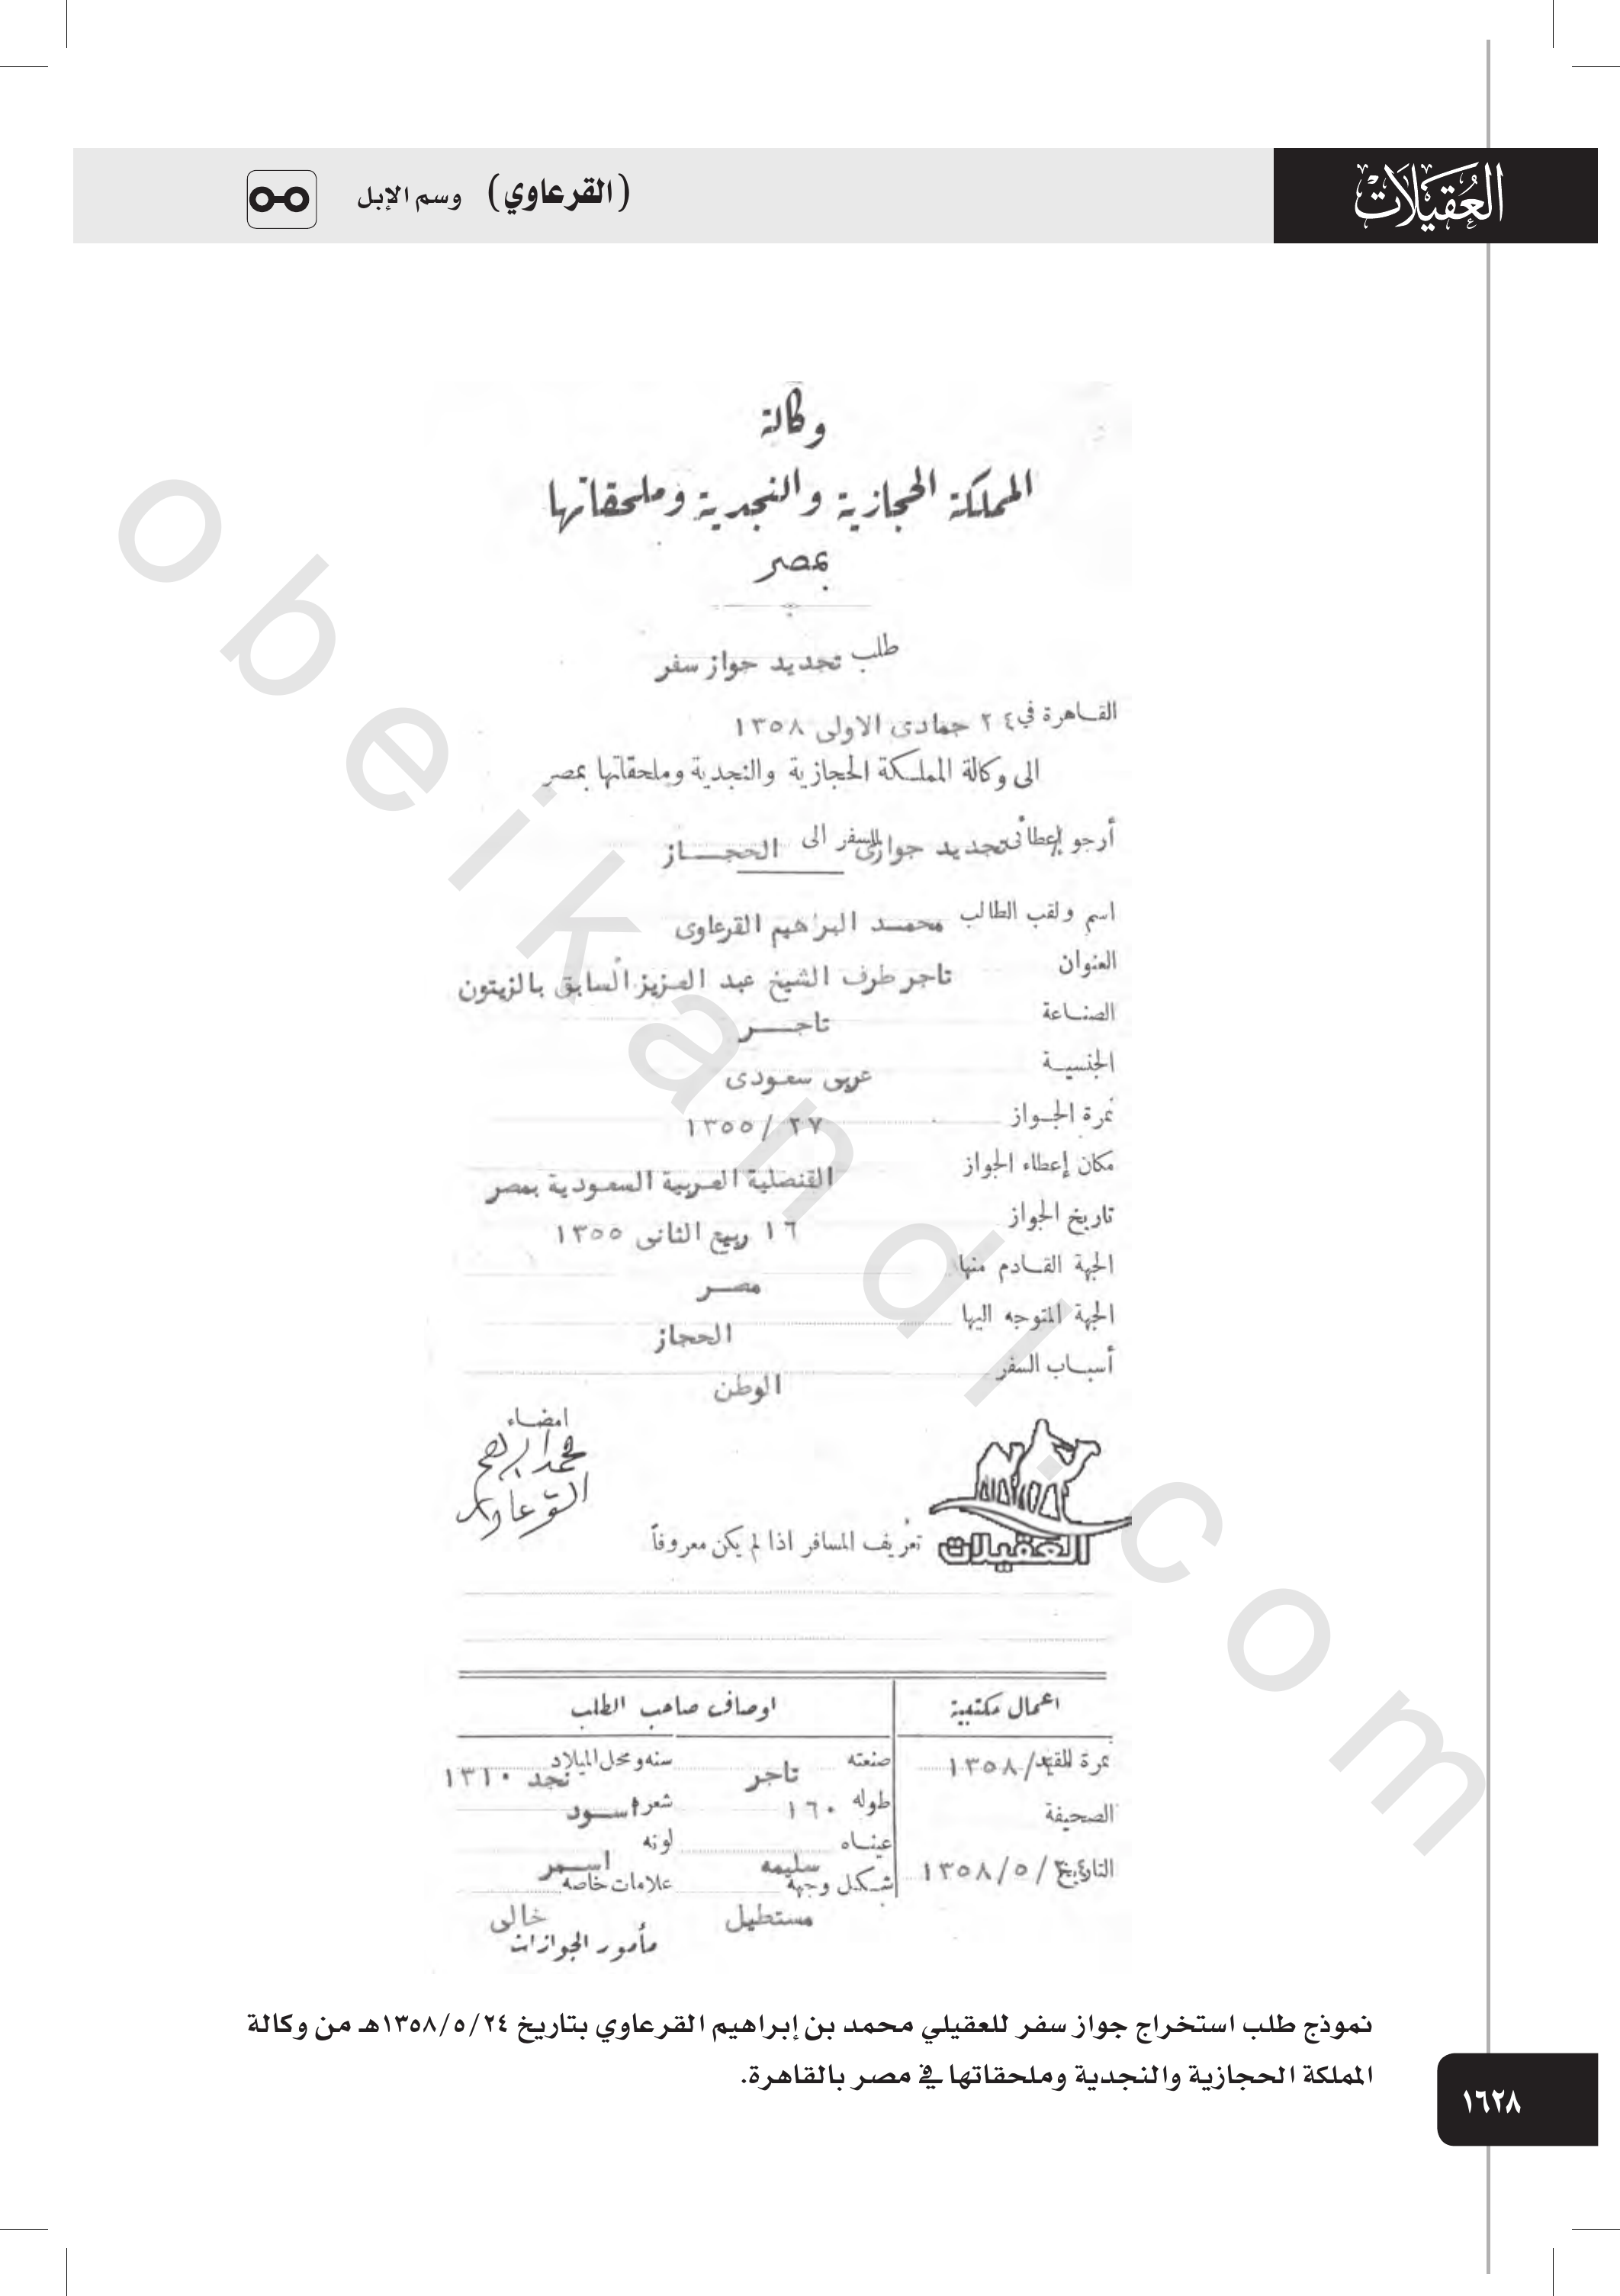 العُقَيْلَاتْ
(القرعاوي) وسم الإبل
وكالة
المملكة الحجازية والنجدية وملحقاتها
بمصر
طلب تجديد جواز سفر
القاهرة في ٢٤ جمادى الاولى ١٣٥٨
الى وكالة المملكة الحجازية والنجدية وملحقاتها بمصر
أرجو إعطائى تجديد جوازى للسفر الى الحجاز
اسم ولقب الطالب محمد البراهيم القرعاوى
العنوان تاجر طرف الشيخ عبد العزيز السابق بالزيتون
الصناعة تاجر
الجنسية عربى سعودى
نمرة الجواز ٢٧ / ١٣٥٥
مكان إعطاء الجواز القنصلية العربية السعودية بمصر
تاريخ الجواز ١٦ ربيع الثانى ١٣٥٥
الجهة القادم منها مصر
الجهة المتوجه اليها الحجاز
أسباب السفر الوطن
امضاء
محمد ابراهيم
القرعاوي
العقيلات
تعريف المسافر اذا لم يكن معروفاً
اعمال مكتبية اوصاف صاحب الطلب
نمرة القيد /١٣٥٨ صنعته تاجر سنه ومحل الميلاد نجد ١٣١٠
الصحيفة طوله ١٦٠ شعره اسود
التاريخ /٥/١٣٥٨ عيناه سليمه لونه اسمر
شكل وجهه مستطيل علامات خاصه خالى
مأمور الجوازات
نموذج طلب استخراج جواز سفر للعقيلي محمد بن إبراهيم القرعاوي بتاريخ ١٣٥٨/٥/٢٤هـ من وكالة
المملكة الحجازية والنجدية وملحقاتها في مصر بالقاهرة.
١٦٢٨
obeikandi.com